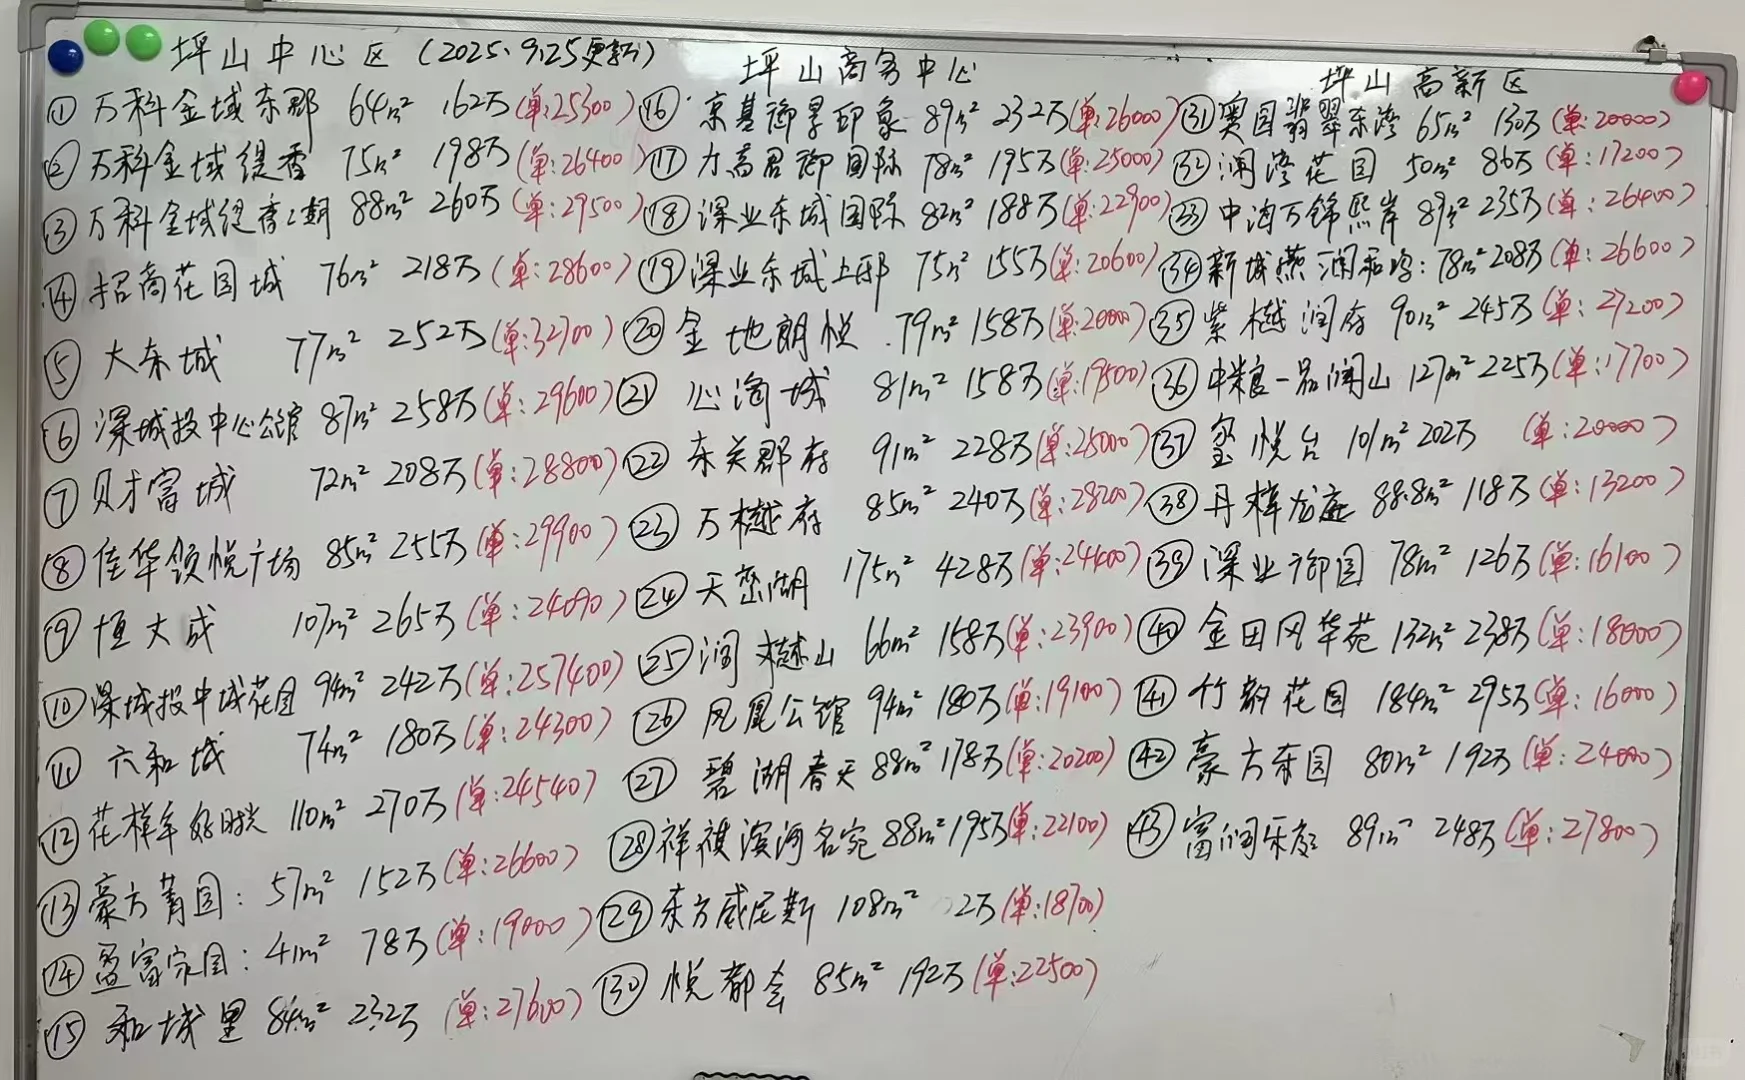 坪山中心区（2025.9.25更新）
① 万科金域东郡 64m² 162万(单:25300)
② 万科金域缇香 75m² 198万(单:26400)
③ 万科金域缇香2期 88m² 260万(单:29500)
④ 招商花园城 76m² 218万(单:28600)
⑤ 大东城 77m² 252万(单:32700)
⑥ 深城投中心公馆 87m² 258万(单:29600)
⑦ 财富城 72m² 208万(单:28800)
⑧ 佳华领悦广场 85m² 255万(单:29900)
⑨ 恒大城 107m² 265万(单:24090)
⑩ 深城投中城花园 94m² 242万(单:257400)
⑪ 六和城 74m² 180万(单:24300)
⑫ 花样年好时光 110m² 270万(单:24540)
⑬ 豪方菁园: 57m² 152万(单:26600)
⑭ 盈富家园: 41m² 78万(单:19000)
⑮ 和城里 84m² 232万(单:27600)
坪山商务中心
⑯ 京基御景印象 89m² 232万(单:26000)
⑰ 力高君御国际 78m² 195万(单:25000)
⑱ 深业东城国际 82m² 188万(单:22900)
⑲ 深业东城上邸 75m² 155万(单:20600)
⑳ 金地朗悦 79m² 158万(单:20000)
㉑ 心海城 81m² 158万(单:19500)
㉒ 东关郡府 91m² 228万(单:25000)
㉓ 万樾府 85m² 240万(单:28200)
㉔ 天峦湖 175m² 428万(单:24400)
㉕ 润樾山 66m² 158万(单:23900)
㉖ 凤凰公馆 94m² 180万(单:19100)
㉗ 碧湖春天 88m² 178万(单:20200)
㉘ 祥祺滨河名苑 88m² 195万(单:22100)
㉙ 东方威尼斯 108m² 2万(单:18700)
㉚ 悦都会 85m² 192万(单:22500)
坪山高新区
㉛ 奥园翡翠东湾 65m² 130万(单:20000)
㉜ 润湾花园 50m² 86万(单:17200)
㉝ 中海万锦熙岸 89m² 235万(单:26400)
㉞ 新城燕澜和鸣: 78m² 208万(单:26600)
㉟ 紫樾润府 90m² 245万(单:27200)
㊱ 中粮一品澜山 127m² 225万(单:17700)
㊲ 玺悦台 101m² 202万(单:20000)
㊳ 丹梓龙庭 88.8m² 118万(单:13200)
㊴ 深业御园 78m² 126万(单:16100)
㊵ 金田风华苑 132m² 238万(单:18000)
㊶ 竹韵花园 184m² 295万(单:16000)
㊷ 豪方东园 80m² 192万(单:24000)
㊸ 富润乐庭 89m² 248万(单:27800)